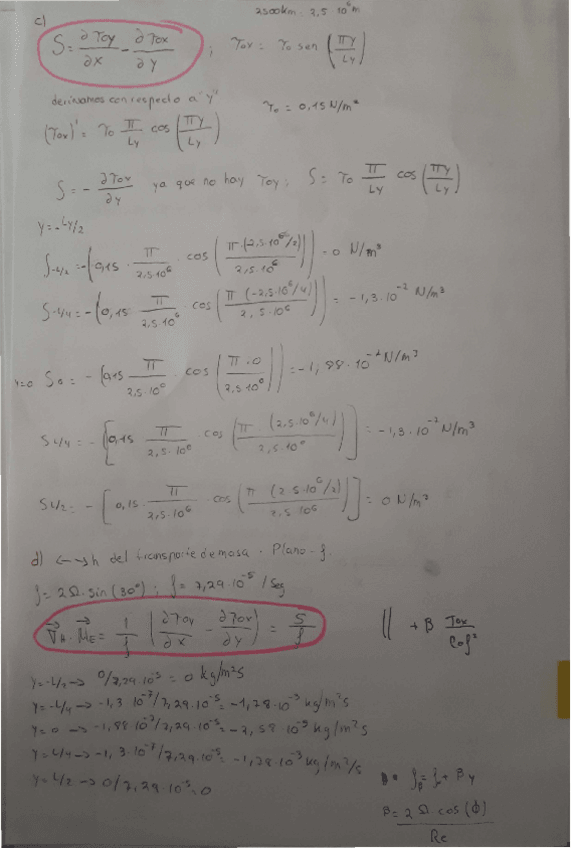 2500km = 2,5·10⁶m
c)
S = ∂τoy/∂x - ∂τox/∂y ; τox = τo sen (πy/Ly)
derivamos con respecto a "y"
τo = 0,15 N/m²
(τox)' = τo π/Ly cos (πy/Ly)
S = - ∂τox/∂y ya que no hay τoy; S = τo π/Ly cos (πy/Ly)
y = -Ly/2
S-L/2 = -(0,15 · π/2,5·10⁶ · cos (π·(2,5·10⁶/2)/2,5·10⁶)) = 0 N/m³
S-L/4 = -(0,15 π/2,5·10⁶ cos (π (-2,5·10⁶/4)/2,5·10⁶)) = -1,3·10⁻⁷ N/m³
y=0 S0 = -(0,15 π/2,5·10⁶ · cos (π·0/2,5·10⁶)) = -1,88·10⁻⁷ N/m³
SL/4 = -[0,15 π/2,5·10⁶ · cos (π (2,5·10⁶/4)/2,5·10⁶)] = -1,3·10⁻⁷ N/m³
SL/2 = -[0,15 π/2,5·10⁶ · cos (π (2,5·10⁶/2)/2,5·10⁶)] = 0 N/m³
d) del transporte de masa · Plano-f.
f = 2Ω·sin(30°) ; f = 7,29·10⁻⁵ /seg
∇H · ME = 1/f (∂τoy/∂x - ∂τox/∂y) = S/f
|| + β τox/ρof²
y = -L/2 → 0/7,29·10⁻⁵ = 0 kg/m²s
y = -L/4 → -1,3·10⁻⁷/7,29·10⁻⁵ = -1,78·10⁻³ kg/m²s
y = 0 → -1,88·10⁻⁷/7,29·10⁻⁵ = -2,58·10⁻³ kg/m²s
y = L/4 → -1,3·10⁻⁷/7,29·10⁻⁵ = -1,78·10⁻³ kg/m²/s
y = L/2 → 0/7,29·10⁻⁵ = 0
fβ = f + βy
β = 2Ω·cos(ϕ)/Re